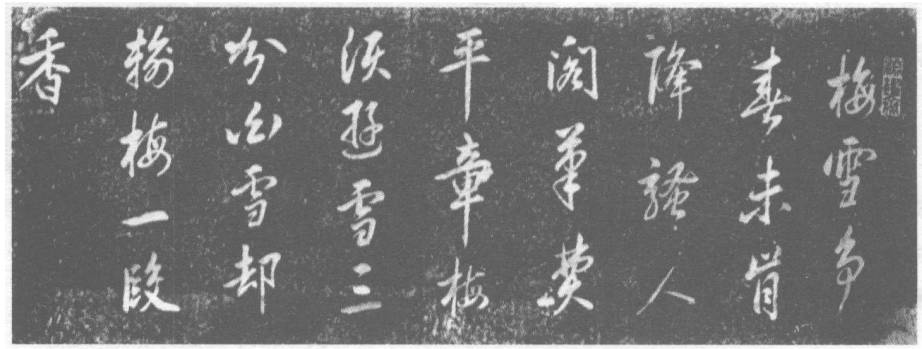 梅雪争
春未肯
降騷人
閣筆費
平章梅
須遜雪三
分白雪却
輸梅一段
香